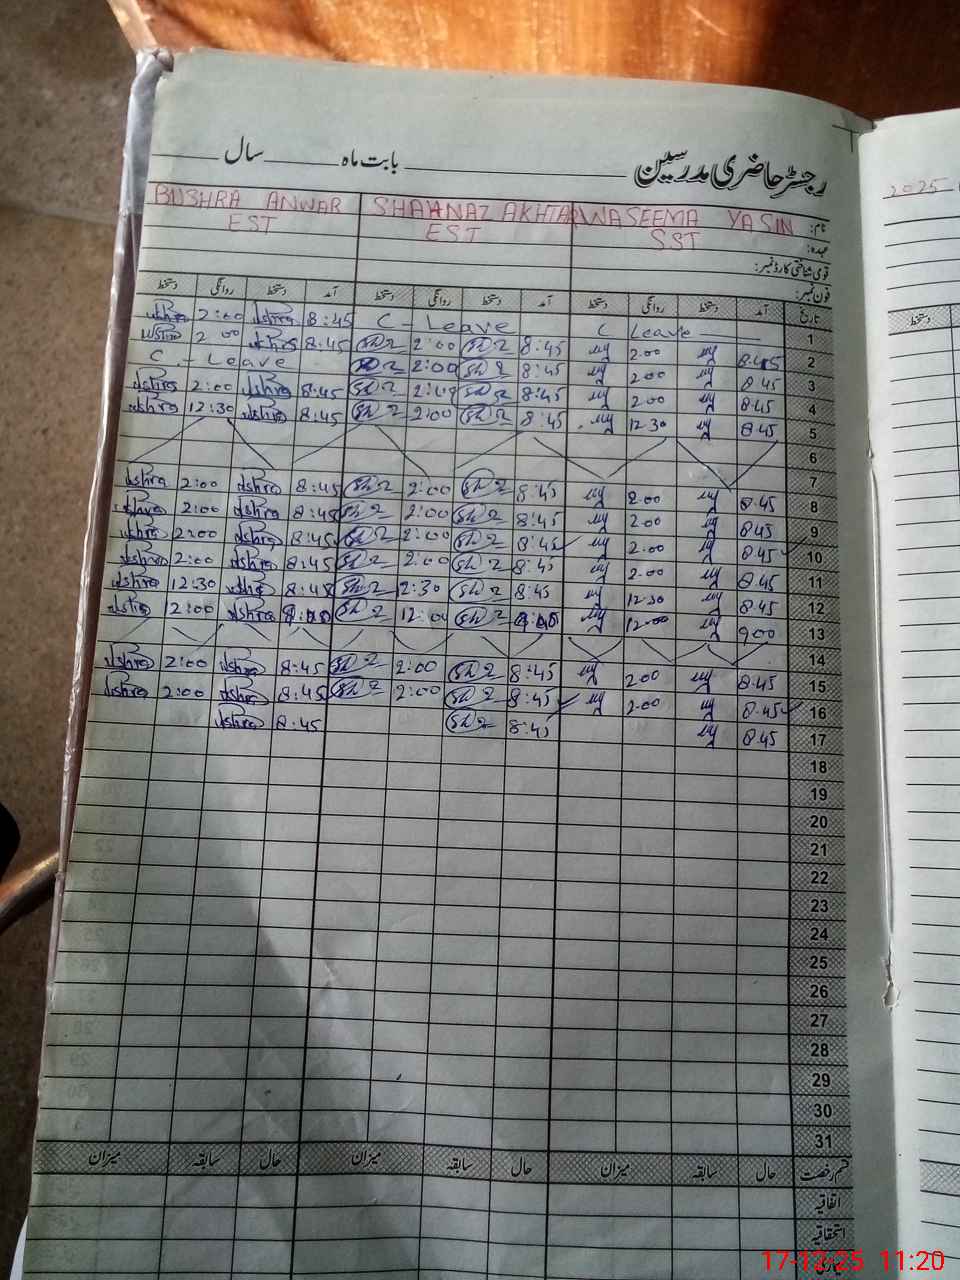 رجسٹر حاضری مدرسین بابت ماہ سال
2025
نام: WASEEMA YASIN SHAHNAZ AKHTAR BUSHRA ANWAR
عہدہ: SST EST EST
قومی شناختی کارڈ نمبر:
فون نمبر:
تاریخ آمد دستخط روانگی دستخط آمد دستخط روانگی دستخط آمد دستخط روانگی دستخط
دستخط
1 C Leave C - Leave 8:45 ushra 2:00 ushra
2 8.45 2.00 8:45 2:00 8:45 ushra 2 00 ushra
3 8.45 2.00 8:45 2:00 C - Leave
4 8.45 2.00 8:45 8:45 ushra 2:00 ushra
5 8.45 12.30 8:45 2:00 8:45 ushra 12:30 ushra
6
7
8 8.45 2.00 8:45 2:00 8:45 ushra 2:00 ushra
9 8.45 2.00 8:45 2:00 8:45 ushra 2:00 ushra
10 8.45 2.00 8:45 2:00 8:45 ushra 2:00 ushra
11 8.45 2.00 8:45 2:00 8:45 ushra 2:00 ushra
12 8.45 12.30 8:45 2:30 8:45 ushra 12:30 ushra
13 9.00 12.00 12:00 ushra 12:00 ushra
14
15 8.45 2.00 8:45 2:00 8:45 ushra 2:00 ushra
16 8.45 2.00 8:45 2:00 8:45 ushra 2:00 ushra
17 8.45 8:45 8:45 ushra
18
19
20
21
22
23
24
25
26
27
28
29
30
31
قسم رخصت حال سابقہ میزان حال سابقہ میزان حال سابقہ میزان
اتفاقیہ
استحقاقیہ
17-12-25 11:20